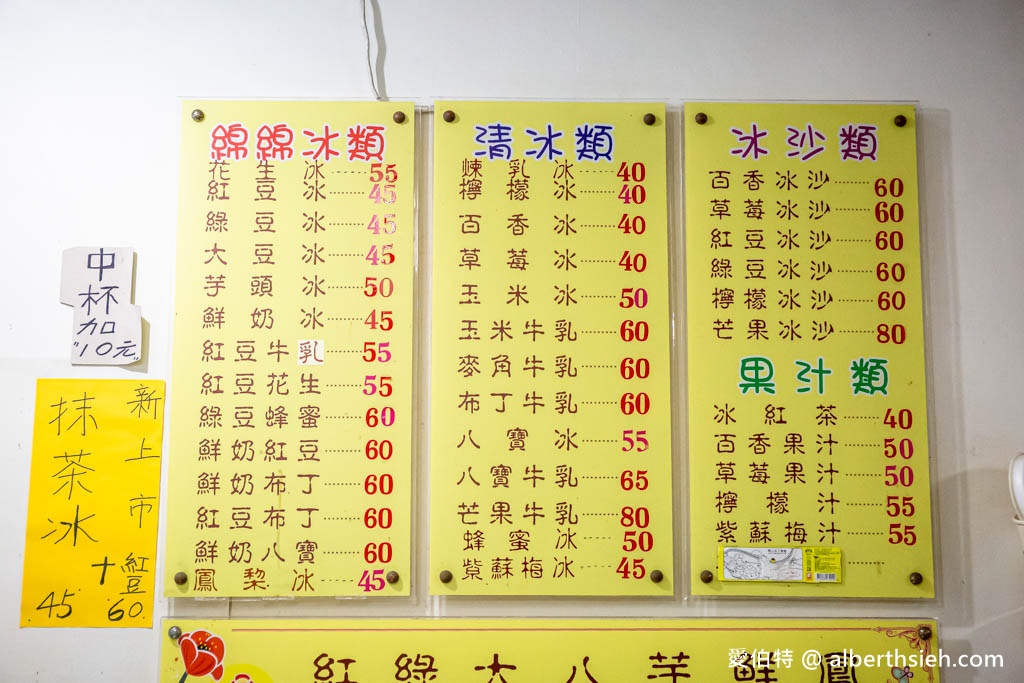 中
杯
加
"10元"
新上市
抹茶冰
45
+紅豆
60
綿綿冰類
花生冰 55
紅豆冰 45
綠豆冰 45
大豆冰 45
芋頭冰 50
鮮奶冰 45
紅豆牛乳 55
紅豆花生 55
綠豆蜂蜜 60
鮮奶紅豆 60
鮮奶布丁 60
紅豆布丁 60
鮮奶八寶 60
鳳梨冰 45
清冰類
煉乳冰 40
檸檬冰 40
百香冰 40
草莓冰 40
玉米冰 50
玉米牛乳 60
麥角牛乳 60
布丁牛乳 60
八寶冰 55
八寶牛乳 65
芒果牛乳 80
蜂蜜冰 50
紫蘇梅冰 45
冰沙類
百香冰沙 60
草莓冰沙 60
紅豆冰沙 60
綠豆冰沙 60
檸檬冰沙 60
芒果冰沙 80
果汁類
冰紅茶 40
百香果汁 50
草莓果汁 50
檸檬汁 55
紫蘇梅汁 55
紅綠大八芋鮮鳳
愛伯特 @ alberthsieh.com